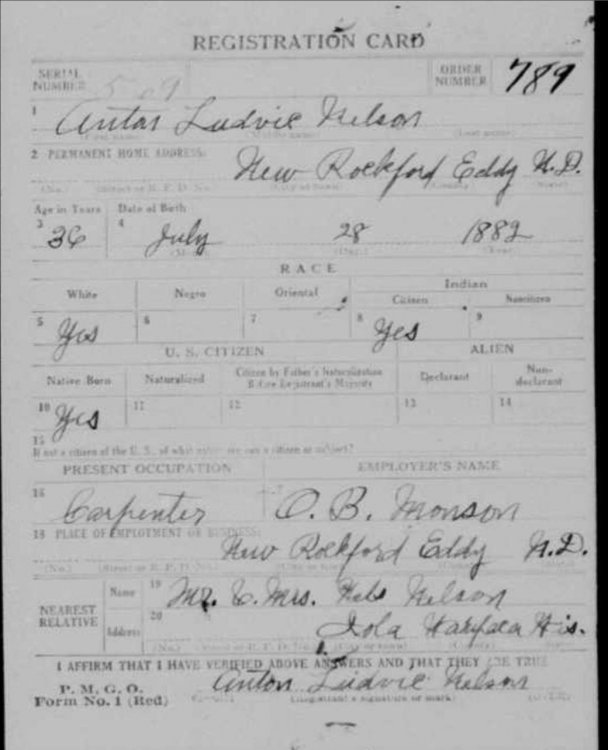 REGISTRATION CARD
SERIAL NUMBER 509 ORDER NUMBER 789
1 Anton Ludvic Nelson
2 PERMANENT HOME ADDRESS:
New Rockford Eddy N.D.
Age in Years Date of Birth
3 36 4 July 28 1882
RACE
White Negro Oriental Indian
Citizen Noncitizen
5 Yes 6 7 8 Yes 9
U. S. CITIZEN ALIEN
Native Born Naturalized Citizen by Father's Naturalization Before Registrant's Majority Declarant Non-declarant
10 Yes 11 12 13 14
15
If not a citizen of the U. S., of what nation are you a citizen or subject?
PRESENT OCCUPATION EMPLOYER'S NAME
16 Carpenter 17 O. B. Monson
18 PLACE OF EMPLOYMENT OR BUSINESS:
New Rockford Eddy N.D.
NEAREST RELATIVE Name 19 Mr. & Mrs. Nels Nelson
Address 20 Iola Waupaca Wis.
I AFFIRM THAT I HAVE VERIFIED ABOVE ANSWERS AND THAT THEY ARE TRUE
P. M. G. O.
Form No. 1 (Red) Anton Ludvic Nelson
(Registrant's signature or mark)